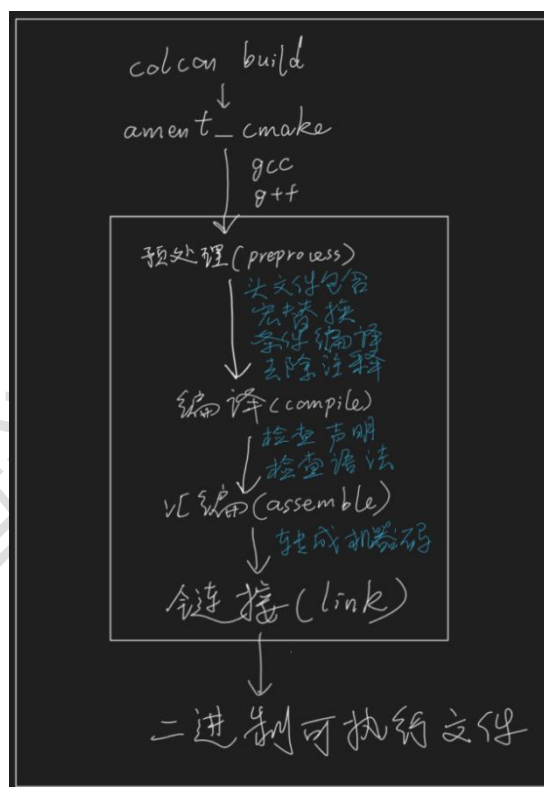 colcon build
ament_cmake
gcc
g++
预处理(preprocess)
头文件包含
宏替换
条件编译
去除注释
编译(compile)
检查声明
检查语法
汇编(assemble)
转成机器码
链接(link)
二进制可执行文件